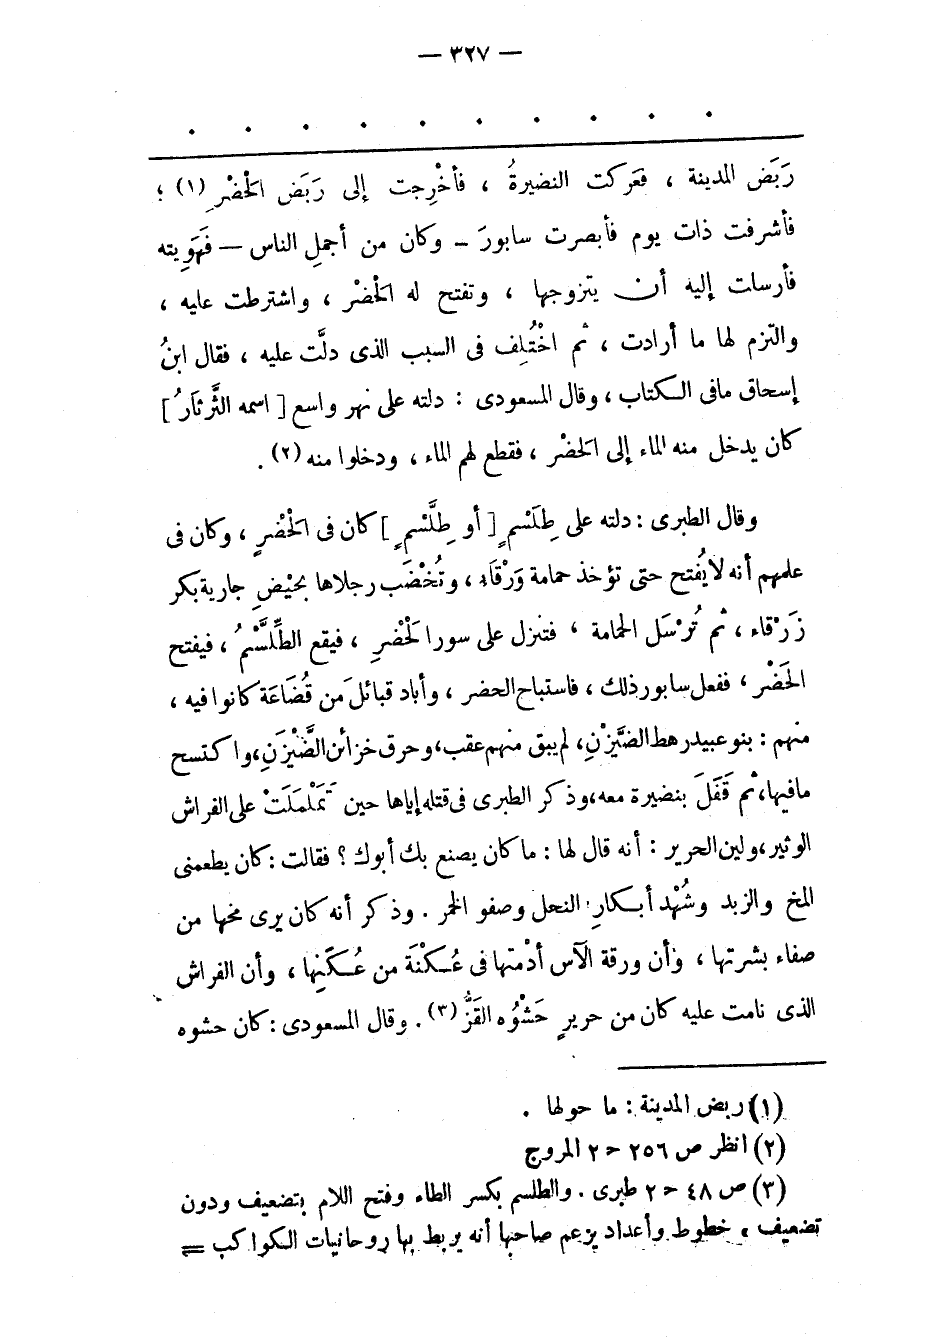 — ٣٢٧ —
. . . . . . . . . .
رَبَض المدينة ، فعَركت النضيرةُ ، فأخْرِجت إلى رَبَض الْحَضْرِ (١) ؛
فأشرفت ذات يوم فأبصرت سابورَ – وكان من أجملِ الناس – فَهَوِيته
فأرسلت إليه أن يتزوجها ، وتفتح له الْحَضْر ، واشترطت عليه ،
والتزم لها ما أرادت ، ثم اخْتُلِف فى السبب الذى دلَّت عليه ، فقال ابنُ
إسحاق مافى الكتاب ، وقال المسعودى : دلته على نهر واسع [ اسمه الثَّرثَارُ ]
كان يدخل منه الماء إلى الحَضْر ، فقطع لهم الماء ، ودخلوا منه (٢) .
وقال الطبرى : دلته على طِلَسْمٍ [ أو طِلَّسْمٍ ] كان فى الْحَضْرِ ، وكان فى
علمهم أنه لايُفتح حتى تؤخذ حمامة وَرْقَاءِ ، وتُخْضَب رجلاها بحَيْضِ جارية بكر
زَرْقاء ، ثم تُرْسَل الحمامة ، فتنزل على سور الْحَضْرِ ، فيقع الطِّلَّسْمُ ، فيفتح
الحَضْر ، ففعل سابور ذلك ، فاستباح الحضر ، وأباد قبائلَ من قُضَاعَة كانوا فيه ،
منهم : بنو عبيد رهط الضَّيْزَنِ، لم يبق منهم عقب، وحرق خزائن الضَّيْزَنِ، واكتسح
مافيها، ثم قَفَلَ بنضيرة معه، وذكر الطبرى فى قتله إياها حين تَمَلْمَلَتْ على الفراش
الوثير، ولين الحرير : أنه قال لها : ما كان يصنع بك أبوك ؟ فقالت : كان يطعمنى
المخ والزبد وشُهْد أبكارِ النحل وصفو الخمر . وذكر أنه كان يرى مخها من
صفاء بشرتها ، وأن ورقة الآس أدْمتها فى عُكْنَة من عُكَنِها ، وأن الفراش
الذى نامت عليه كان من حريرٍ حَشْوُه القَزُّ (٣) . وقال المسعودى : كان حشوه
(١) ربض المدينة : ما حولها .
(٢) انظر ص ٢٥٦ ح ٢ المروج
(٣) ص ٤٨ ح ٢ طبرى . والطلسم بكسر الطاء وفتح اللام بتضعيف ودون
تضعيف ، خطوط وأعداد يزعم صاحبها أنه يربط بها روحانيات الكواكب =